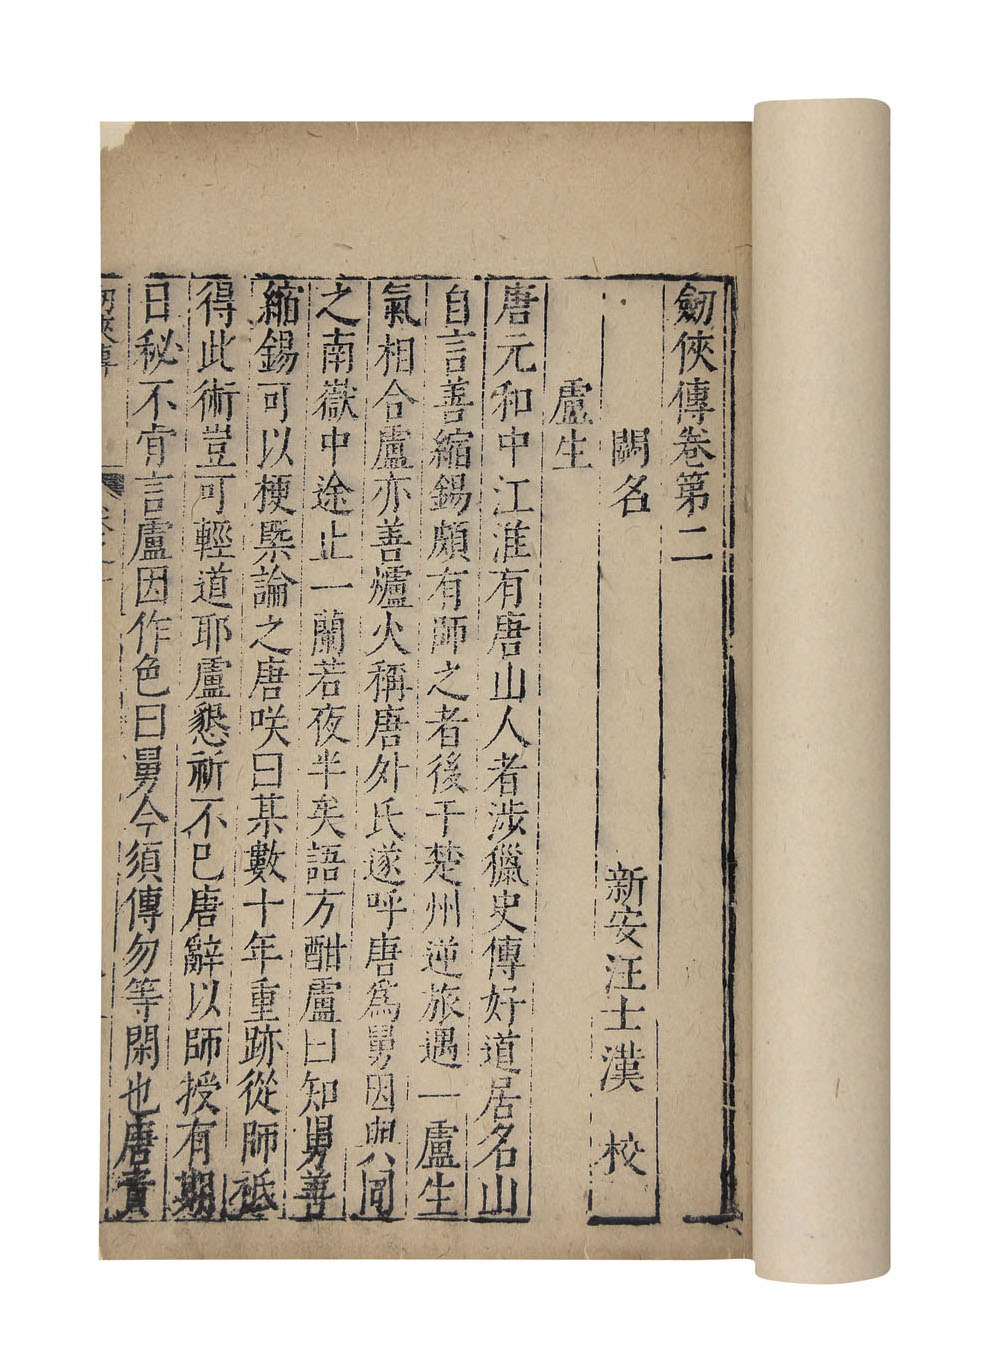 劒俠傳卷第二
闕名
新安汪士漢 校
盧生
唐元和中江淮有唐山人者涉獵史傳好道居名山
自言善縮錫頗有師之者後于楚州逆旅遇一盧生
氣相合盧亦善爐火稱唐外氏遂呼唐爲舅因與同
之南嶽中途止一蘭若夜半矣語方酣盧曰知舅善
縮錫可以梗槩論之唐咲曰某數十年重跡從師祗
得此術豈可輕道耶盧懇祈不已唐辭以師授有期
日秘不肯言盧因作色曰舅今須傳勿等閑也唐責